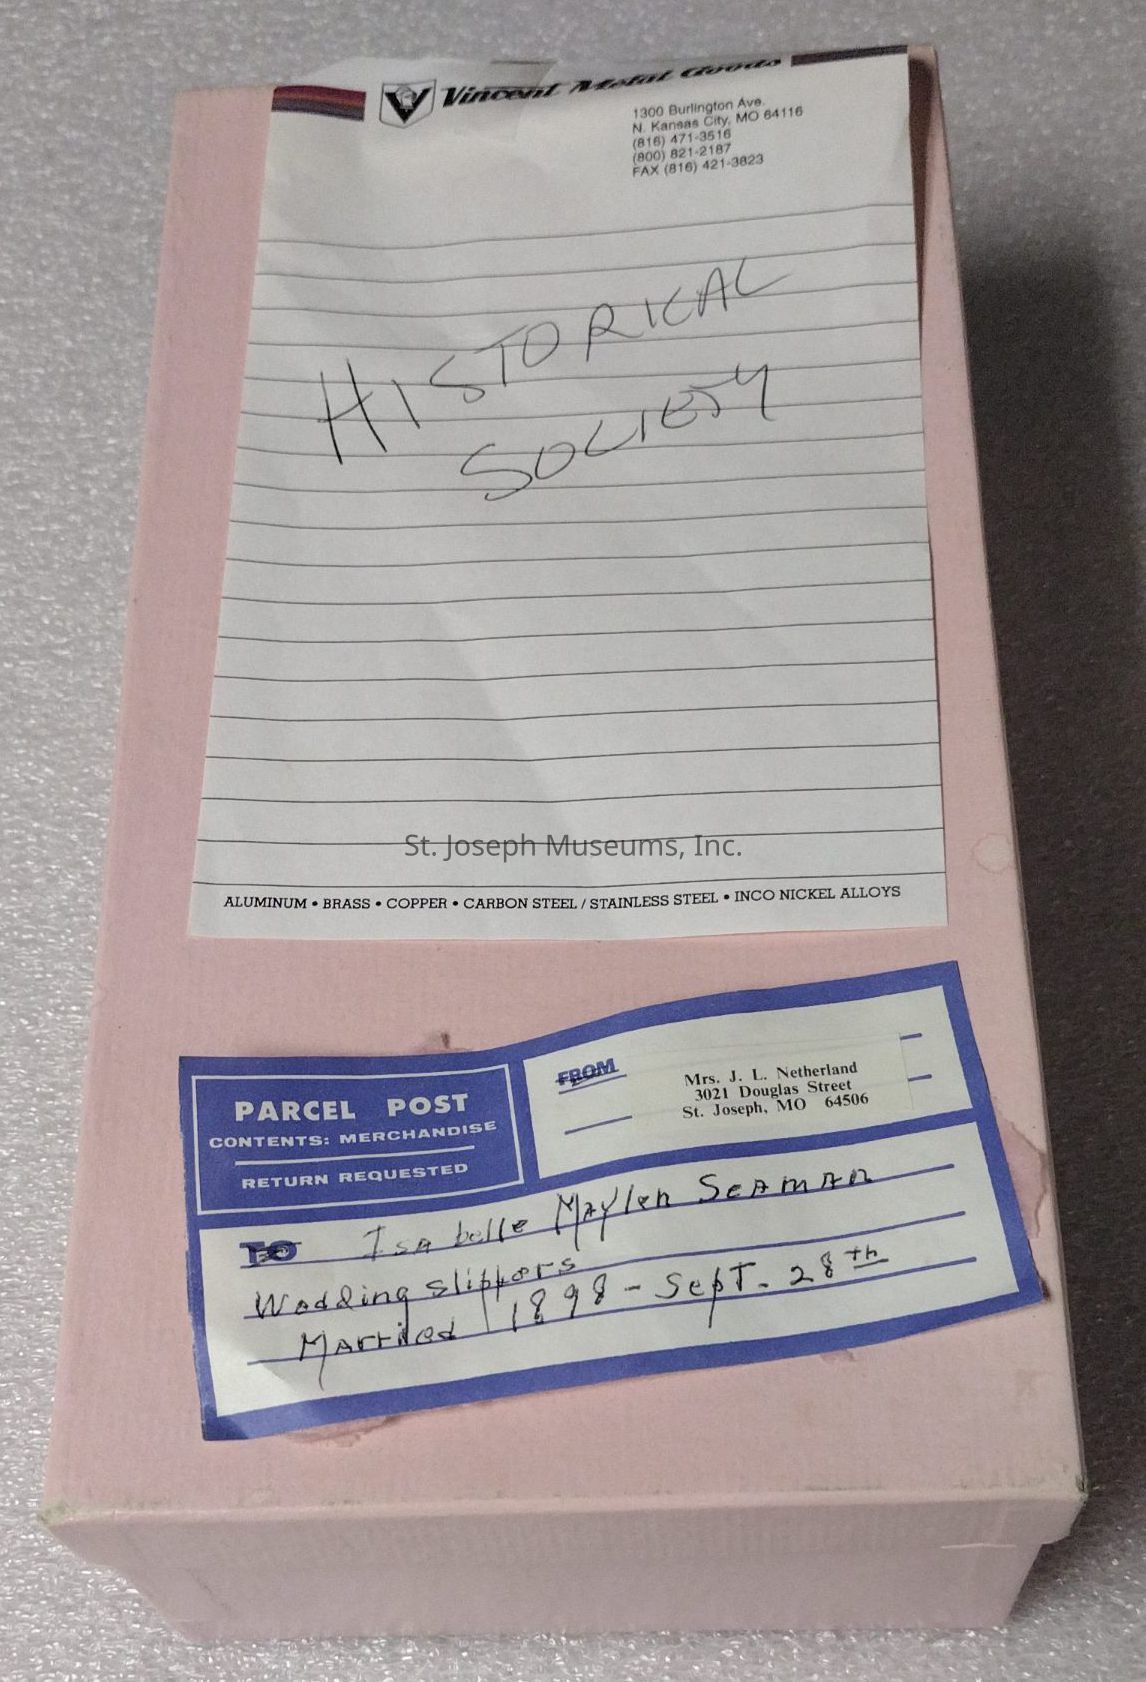 Vincent Metal Goods
1300 Burlington Ave.
N. Kansas City, MO 64116
(816) 471-3516
(800) 821-2187
FAX (816) 421-3823
HISTORICAL
SOCIETY
St. Joseph Museums, Inc.
ALUMINUM • BRASS • COPPER • CARBON STEEL / STAINLESS STEEL • INCO NICKEL ALLOYS
PARCEL POST
CONTENTS: MERCHANDISE
RETURN REQUESTED
FROM
Mrs. J. L. Netherland
3021 Douglas Street
St. Joseph, MO 64506
TO Isabelle Maylen Seaman
Wedding slippers
Married 1898 - Sept. 28th